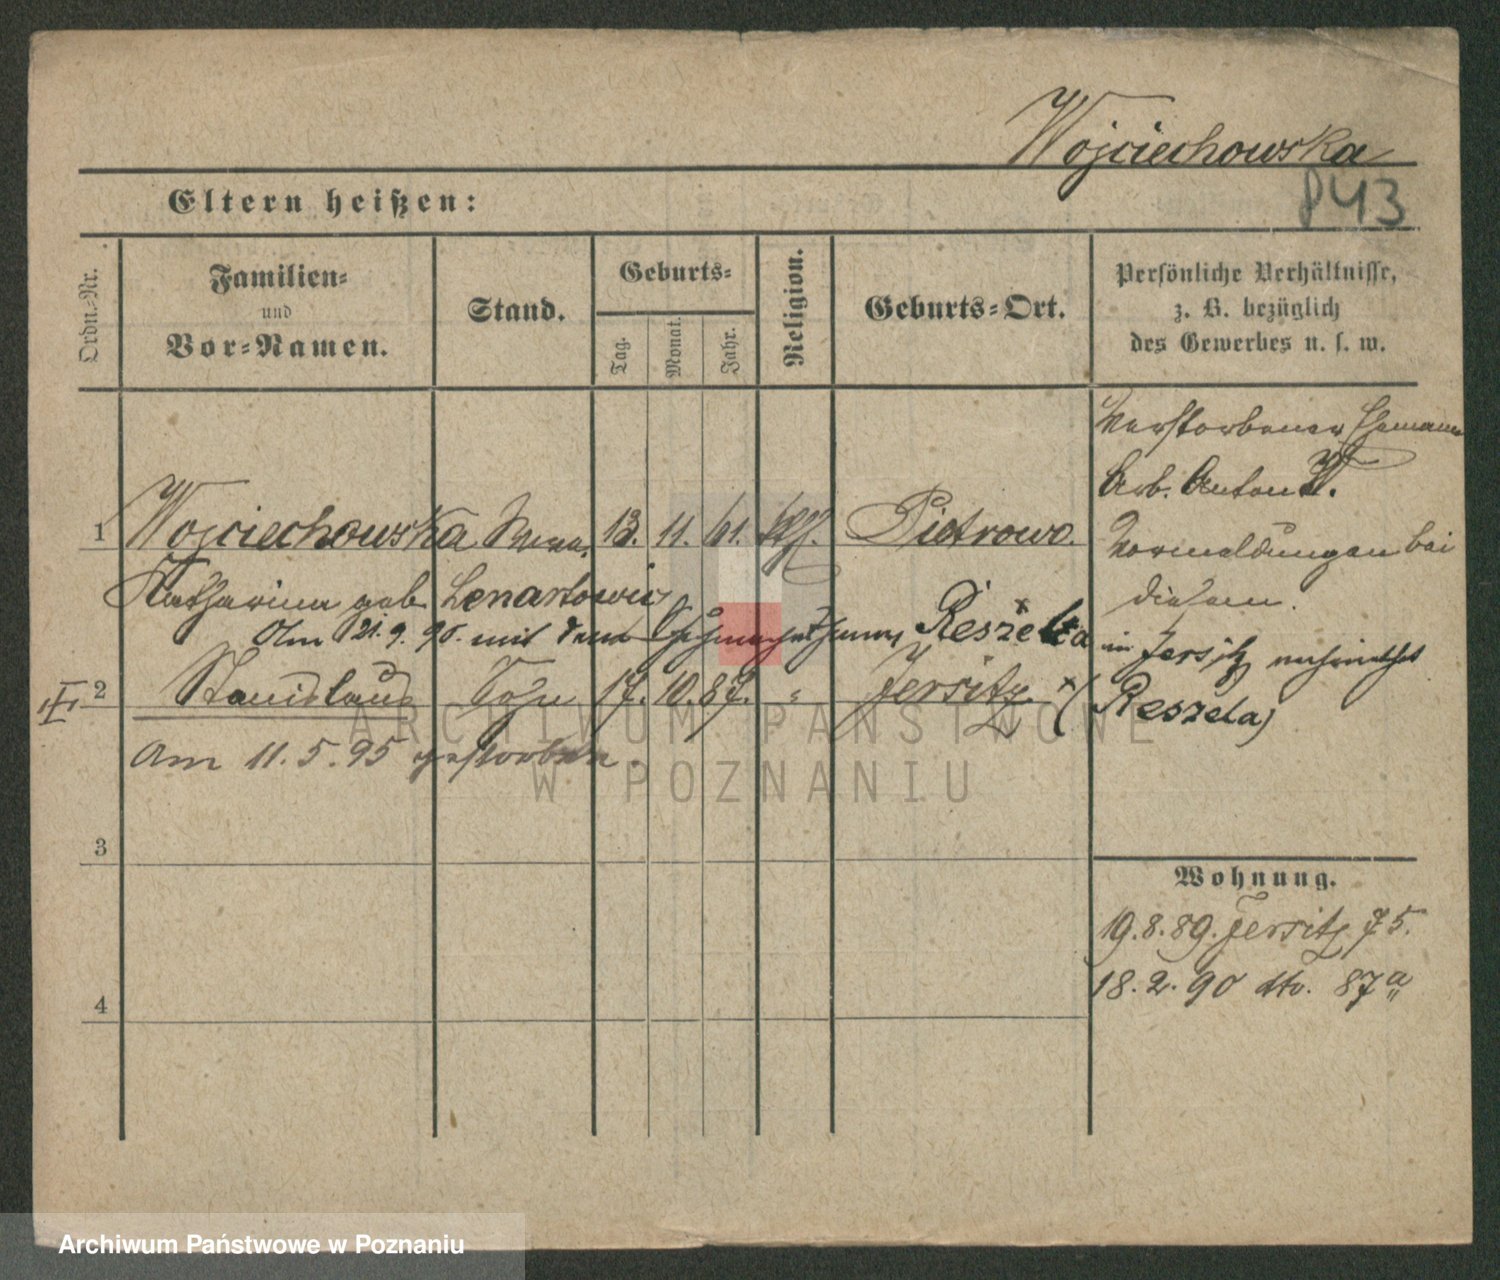 Wojciechowska
843
Eltern heißen:
Ordn.-Nr.
Familien-
und
Vor-Namen.
Stand.
Geburts-
Tag.
Monat.
Jahr.
Religion.
Geburts-Ort.
Persönliche Verhältnisse,
z. B. bezüglich
des Gewerbes u. s. w.
Verstorbener Ehemann
Arb. Anton W.
Vormeldungen bei
diesem.
1 Wojciechowska Wwe. 13. 11. 61. kth. Pietrowo.
Katharina geb. Lenartowicz
Am 21. 9. 95. mit dem Reszela
in Jersitz verheirathet
2 Stanislaus Sohn 17. 10. 87. " Jersitz
(Reszela)
Am 11. 5. 95 gestorben.
3
4
Wohnung.
19. 8. 89. Jersitz 75.
18. 2. 90 dto. 87a
ARCHIWUM PAŃSTWOWE
W POZNANIU
Archiwum Państwowe w Poznaniu